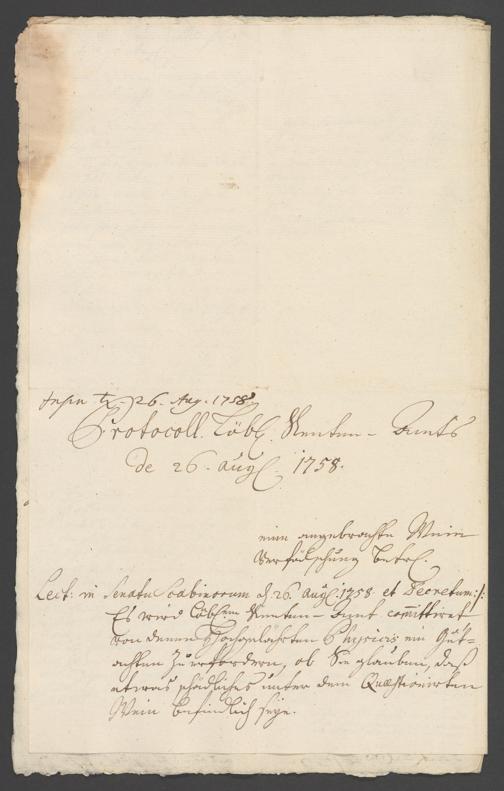 26. Aug. 1758
Protocoll. Löbl. Renten-Amts
de 26. Augl. 1758.
eine angebrachte Wein
Verfälschung betrl.
Lect: in Senatu Scabinorum d. 26. Augl. 1758 et Decretum:/:
Es wird Löblem Renten-Amt committiret
von denen Hochgelährten Physicis ein Gut-
achten zu erfordern, ob Sie glauben, daß
etwas schädliches unter dem Quæstionirten
Wein befindlich seye.